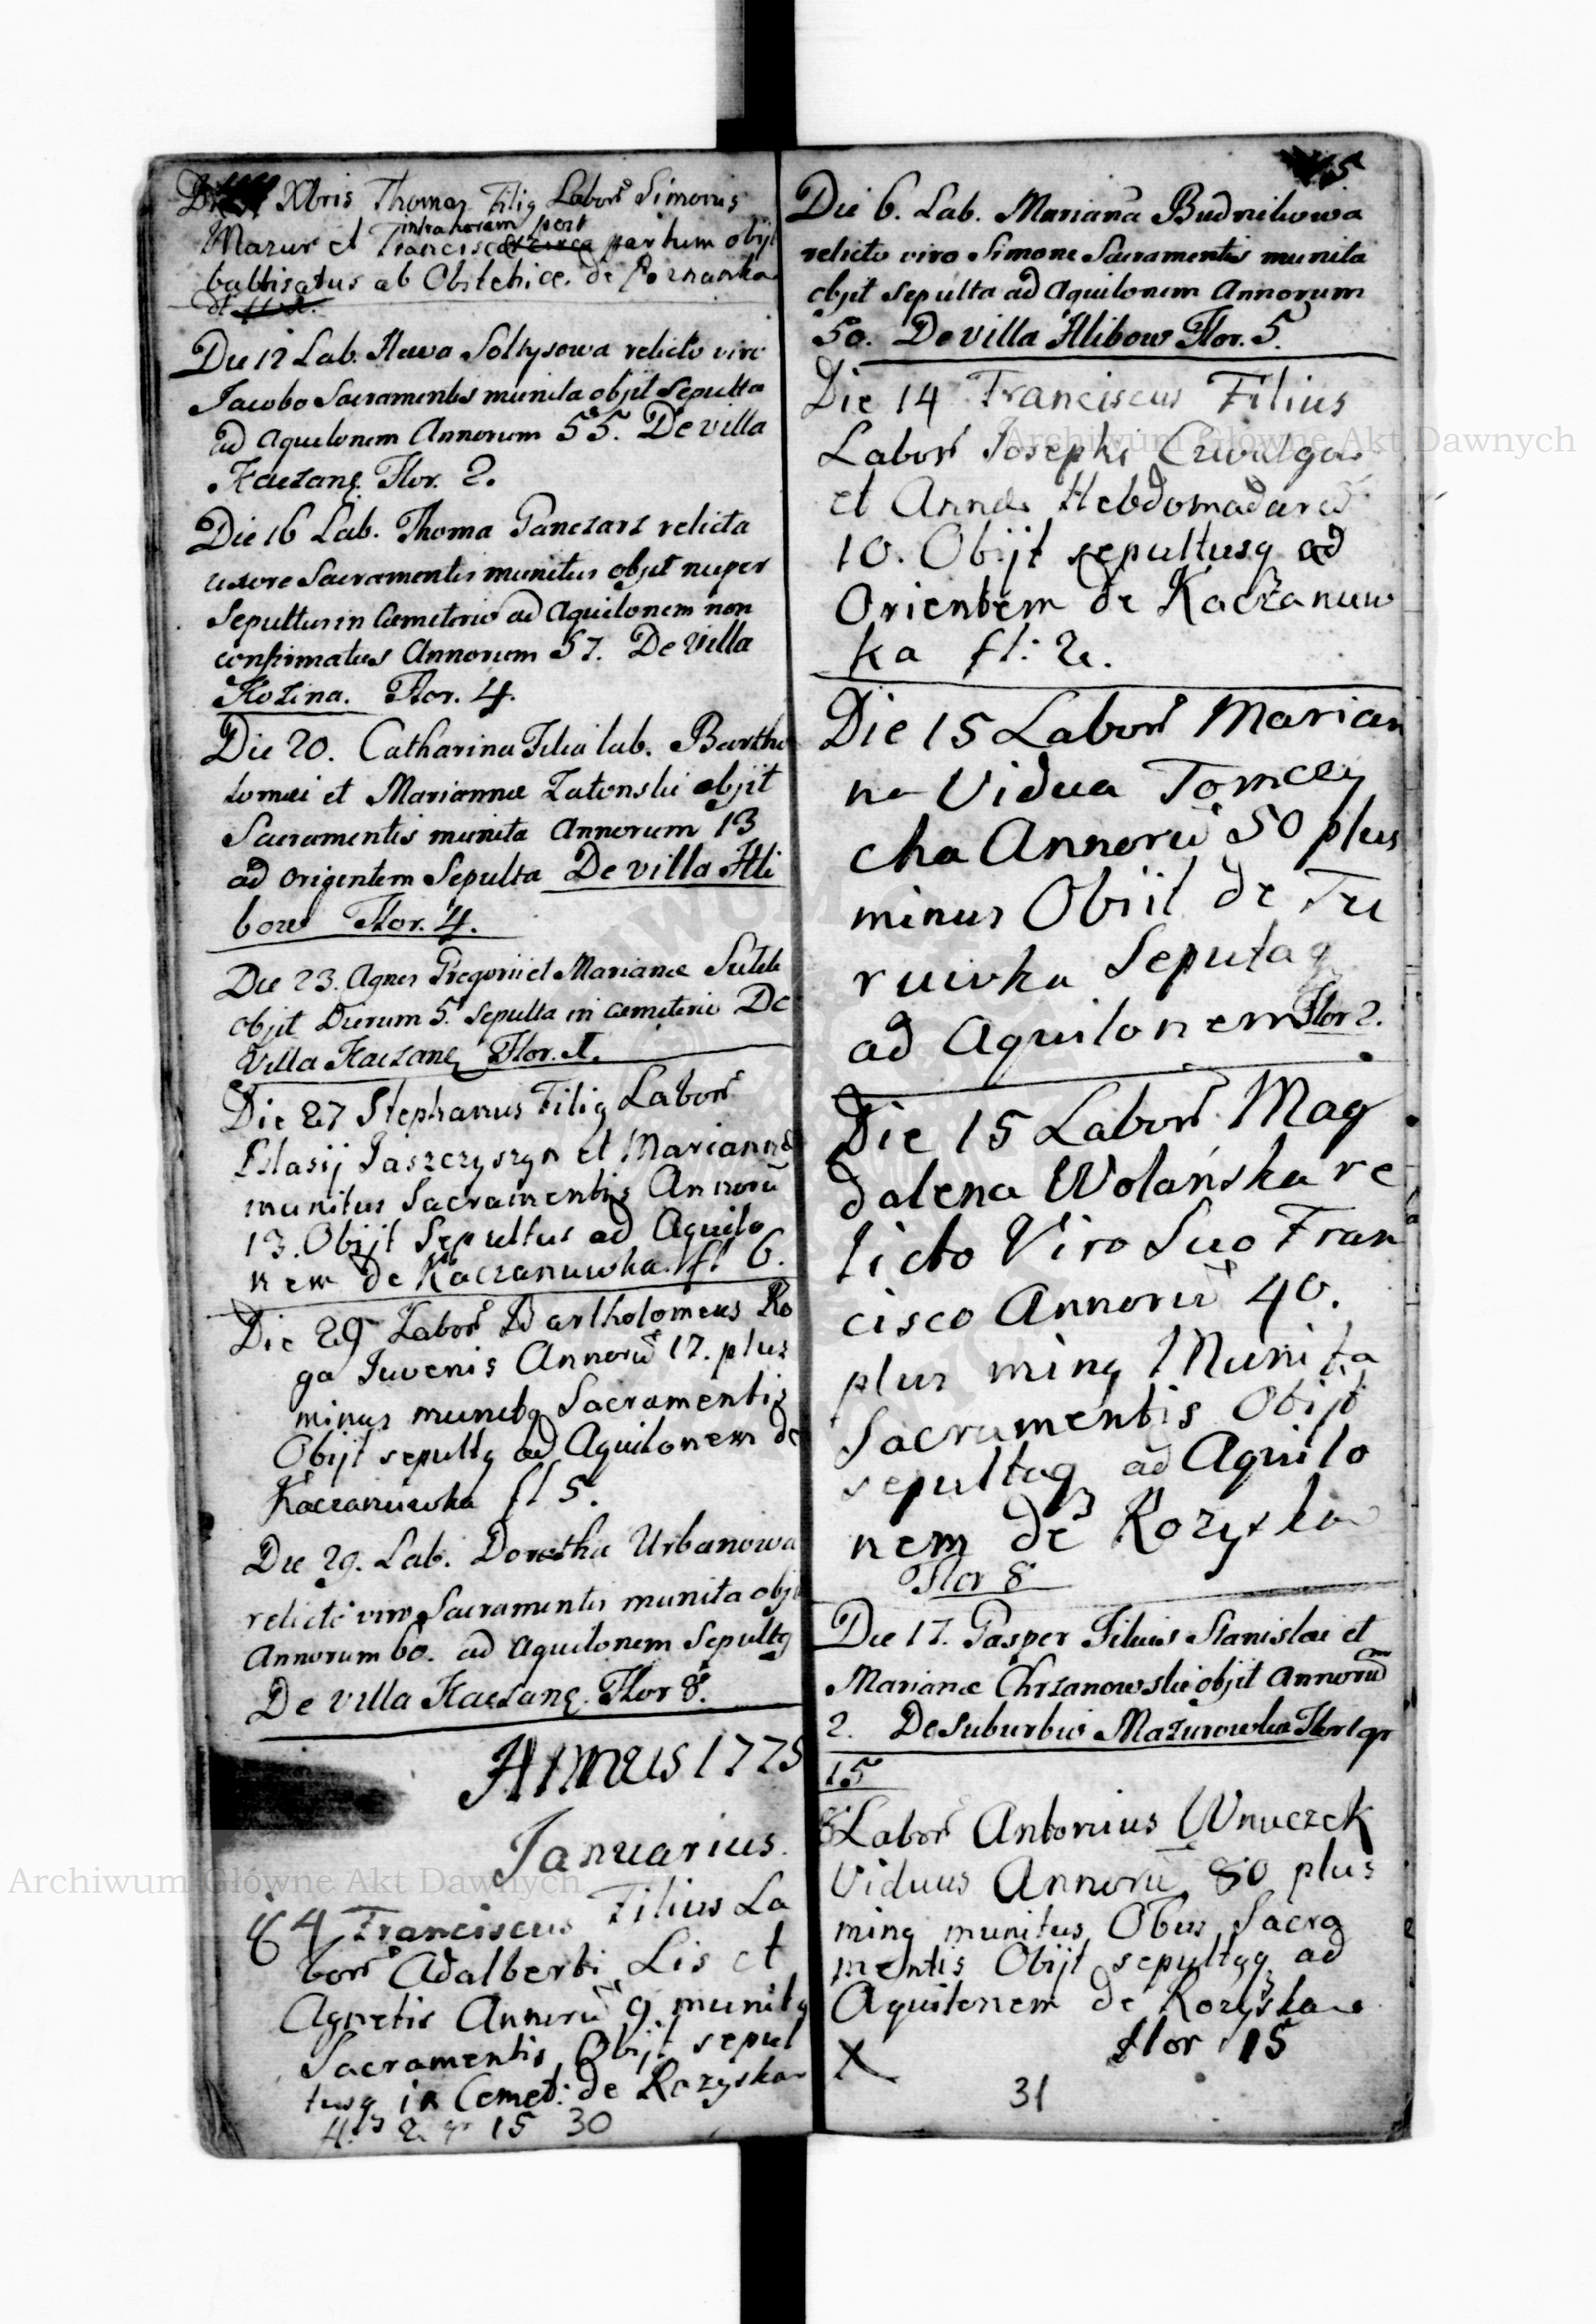 Xbris Thomas Filiq Labor Simonis
intra horam post
Mazur et Francisca partum obijt
babtisatus ab Obstetrice. de
Die 12 Lab. Hewa Soltysowa relicto viro
Jacobo Sacramentis munita objit Sepulta
ad Aquilonem Annorum 55. De villa
Kaczanq. Flor. 2.
Die 16 Lab. Thoma Ganczarz relicta
uxore Sacramentis munitus objit nuper
Sepultus in Cemeterio ad Aquilonem non
confirmatus Annorum 57. De Villa
Kozina. Flor. 4.
Die 20. Catharina Filia lab. Bartho
lomei et Marianna Zatonski objit
Sacramentis munita Annorum 13
ad origentem Sepulta De villa Hli
bow Flor. 4.
Die 23. Agnes Gregorii et Mariana
objit Dierum 5. Sepulta in cemeterio De
Villa Kaczanq Flor. 1.
Die 27 Stephanus Filiq Labor
Blasij Jaszczyszyn et Marianna
munitus Sacramentis Annorū
13. Obijt Sepultus ad Aquilo
nem de Kaczanuwka. fl 6.
Die 29 Labor Bartholomeus Ro
ga Juvenis Annorū 17. plus
minus munitq Sacramentis
Obijt sepultq ad Aquilonem de
Kaczanuwka fl 5.
Die 29. Lab. Dorotha Urbanowa
relicto viro Sacramentis munita objt
Annorum 60. ad Aquilonem Sepultq
De villa Kaczanq. Flor 8.
Annus 1775
Januarius.
4 Franciscus Filius La
bor Adalberti Lis et
Agnetis Annorū 9 munitq
Sacramentis Obijt sepul
tusq in Cemet: de Rozyska
fl. 2 gr 15 30
5
Die 6. Lab. Mariana Budnikowa
relicto viro Simone Sacramentis munita
objit Sepulta ad Aquilonem Annorum
50. De villa Hlibow Flor. 5.
Die 14 Franciscus Filius
Labor Josephi
et Anna Hebdomadarū
10. Obijt sepultusq ad
Orientem de Kaczanuw
ka fl: 2.
Die 15 Labor Marian
na Vidua Tomczy
cha Annorū 50 plus
minus Obiit de Tu
ruwka Seputaq
ad Aquilonem Flor 2.
Die 15 Labor Mag
dalena Wolańska re
licto Viro Suo Fran
cisco Annorū 40.
plus minq Munita
Sacramentis Obijt
sepultaq ad Aquilo
nem de Rozyska
Flor 8
Die 17. Gasper Filius Stanislai et
Mariana Chrzanowski objit Annorū
2. De suburbio Mazurowka Flor 1 gr
15
Labor Antonius Wnuczek
Viduus Annorū 80 plus
minq munitus Obus Sacra
mentis Obijt sepultqq ad
Aquilonem de Rozyska
X flor 15
31
Archiwum Główne Akt Dawnych
Archiwum Główne Akt Dawnych